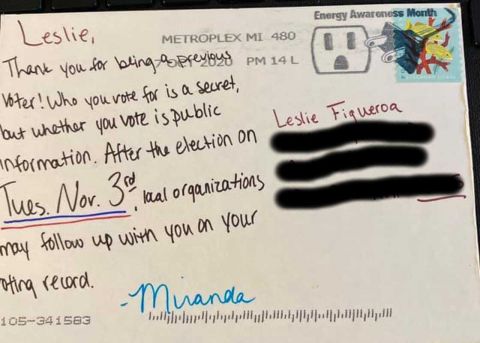 Leslie,
METROPLEX MI 480
2020 PM 14 L
Energy Awareness Month
Thank you for being a previous
voter! Who you vote for is a secret,
but whether you vote is public
information. After the election on
Tues. Nov. 3rd, local organizations
may follow up with you on your
voting record.
-Miranda
Leslie Figueroa
105-341583